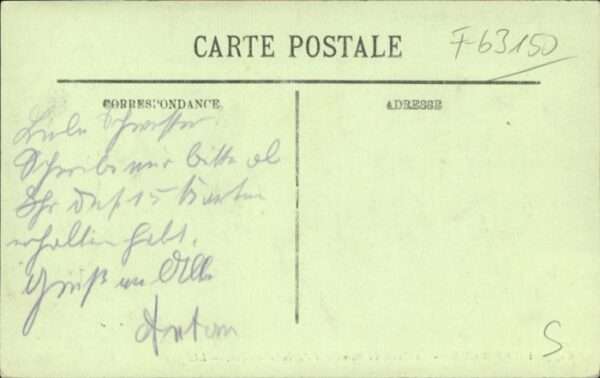 CARTE POSTALE
F-63150
CORRESPONDANCE
ADRESSE
Liebe Schwester.
Schreibe mir bitte ob
Ihr die 15 Karten
erhalten habt.
Gruß an Alle
Anton
S